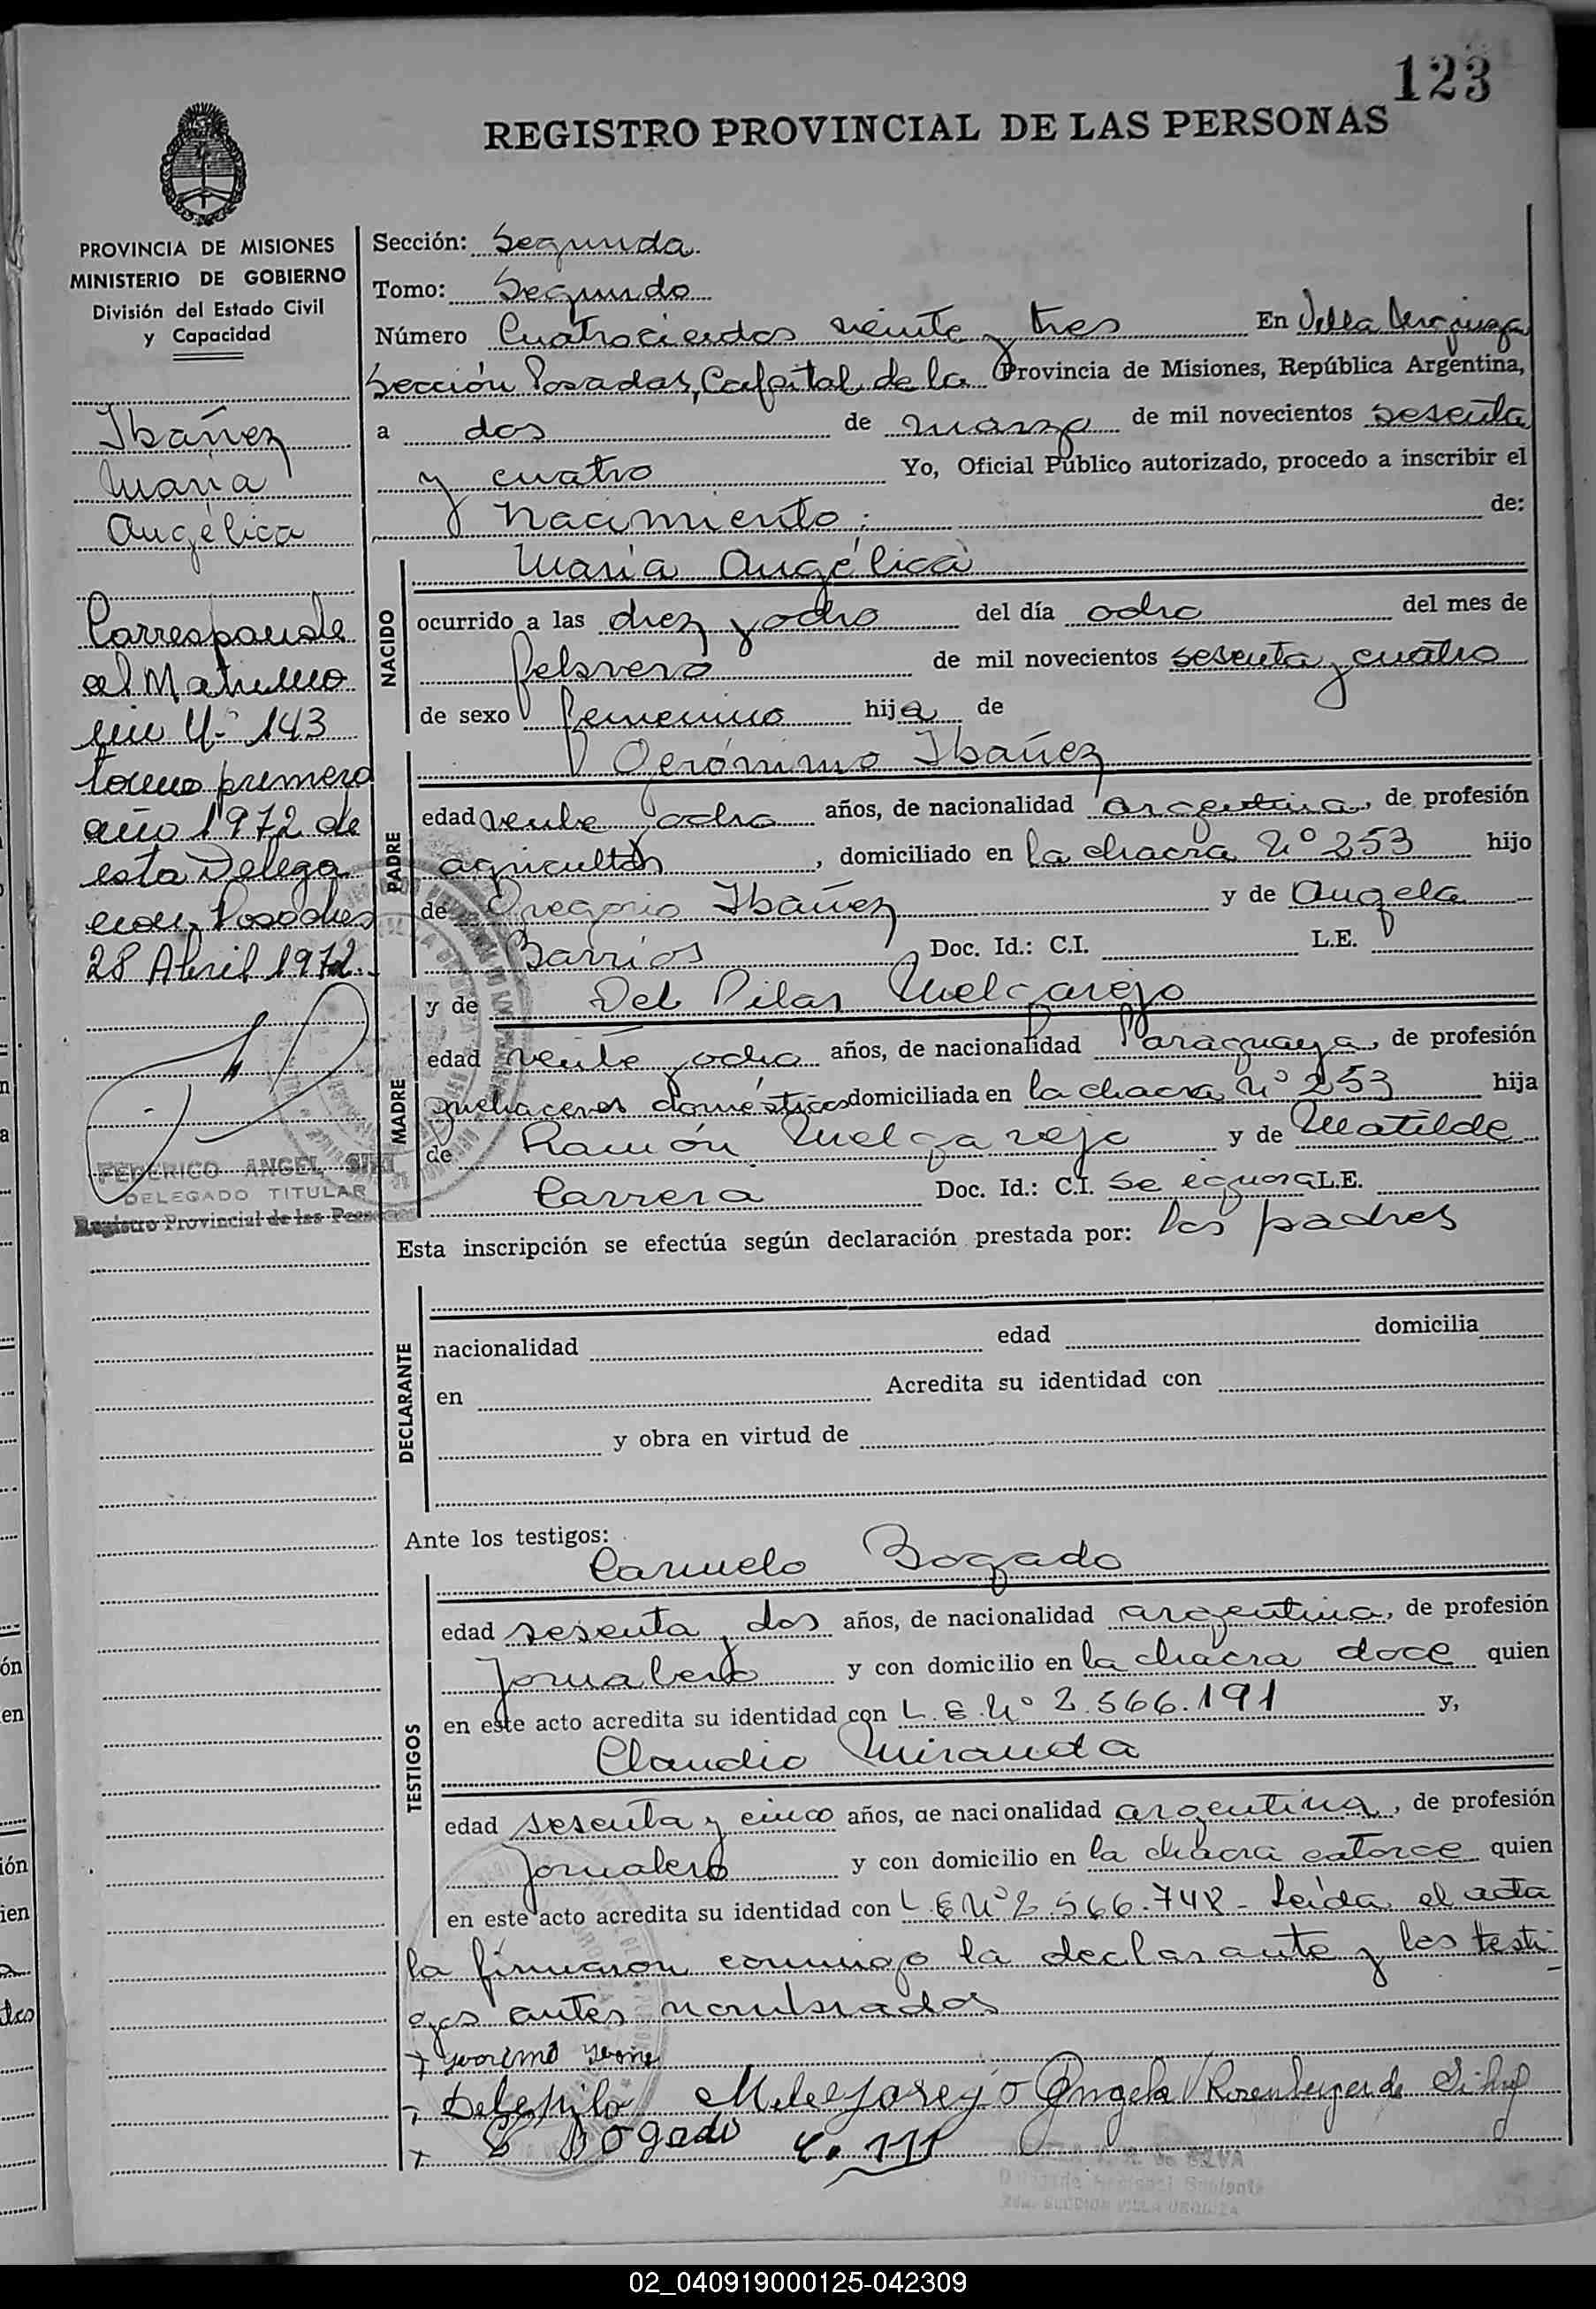 123
REGISTRO PROVINCIAL DE LAS PERSONAS
PROVINCIA DE MISIONES
MINISTERIO DE GOBIERNO
División del Estado Civil
y Capacidad
Ibáñez
María
Angélica
Corresponde
al Matrimo
nio Nº 143
tomo primero
año 1972 de
esta Delega
cion. Posadas
28 Abril 1972.
FEDERICO ANGEL
DELEGADO TITULAR
Registro Provincial de las Personas
Sección: Segunda
Tomo: Segundo
Número Cuatrocientos veinte y tres En Villa Urquiza
Sección Posadas, Capital de la Provincia de Misiones, República Argentina,
a dos de marzo de mil novecientos sesenta
y cuatro Yo, Oficial Público autorizado, procedo a inscribir el
nacimiento: de:
NACIDO
María Angélica
ocurrido a las diez y ocho del día ocho del mes de
febrero de mil novecientos sesenta y cuatro
de sexo femenino hija de
PADRE
Gerónimo Ibáñez
edad veinte y ocho años, de nacionalidad argentina, de profesión
agricultor, domiciliado en la chacra Nº 253 hijo
de Gregorio Ibáñez y de Angela
Barrios Doc. Id.: C.I. L.E.
MADRE
y de Del Pilar Melgarejo
edad veinte y ocho años, de nacionalidad Paraguaya, de profesión
quehaceres domésticos domiciliada en la chacra Nº 253 hija
de Ramón Melgarejo y de Matilde
Carrera Doc. Id.: C.I. se ignora L.E.
Esta inscripción se efectúa según declaración prestada por: los padres
DECLARANTE
nacionalidad edad domicilia
en Acredita su identidad con
y obra en virtud de
Ante los testigos:
TESTIGOS
Carmelo Bogado
edad sesenta y dos años, de nacionalidad argentina, de profesión
Jornalero y con domicilio en la chacra doce quien
en este acto acredita su identidad con L.E. Nº 2.566.191 y,
Claudio Miranda
edad sesenta y cinco años, de nacionalidad argentina, de profesión
Jornalero y con domicilio en la chacra catorce quien
en este acto acredita su identidad con L.E Nº 2.566.748 - Leída el acta
la firmaron conmigo la declarante y los testi-
gos antes nombrados
Melgarejo Angela Rosenberger de Silva
Bogado
02_040919000125-042309